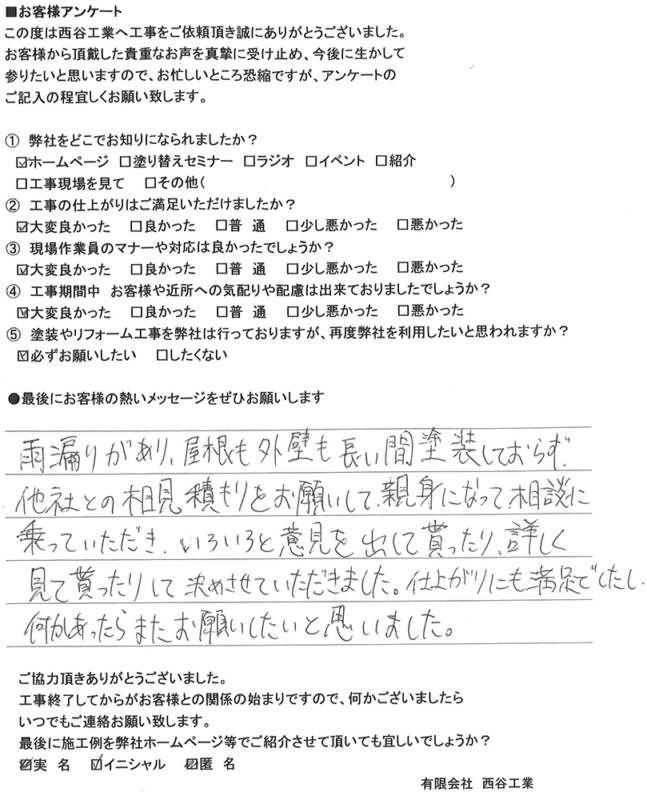 ■お客様アンケート
この度は西谷工業へ工事をご依頼頂き誠にありがとうございました。
お客様から頂戴した貴重なお声を真摯に受け止め、今後に生かして
参りたいと思いますので、お忙しいところ恐縮ですが、アンケートの
ご記入の程宜しくお願い致します。
① 弊社をどこでお知りになられましたか？
☑ホームページ □塗り替えセミナー □ラジオ □イベント □紹介
□工事現場を見て □その他( )
② 工事の仕上がりはご満足いただけましたか？
☑大変良かった □良かった □普 通 □少し悪かった □悪かった
③ 現場作業員のマナーや対応は良かったでしょうか？
☑大変良かった □良かった □普 通 □少し悪かった □悪かった
④ 工事期間中 お客様や近所への気配りや配慮は出来ておりましたでしょうか？
☑大変良かった □良かった □普 通 □少し悪かった □悪かった
⑤ 塗装やリフォーム工事を弊社は行っておりますが、再度弊社を利用したいと思われますか？
☑必ずお願いしたい □したくない
●最後にお客様の熱いメッセージをぜひお願いします
雨漏りがあり、屋根も外壁も長い間塗装しておらず、
他社との相見積もりをお願いして、親身になって、相談に
乗っていただき、いろいろと意見を出して貰ったり、詳しく
見て貰ったりして決めさせていただきました。仕上がりにも満足でしたし、
何かあったらまたお願いしたいと思いました。
ご協力頂きありがとうございました。
工事終了してからがお客様との関係の始まりですので、何かございましたら
いつでもご連絡お願い致します。
最後に施工例を弊社ホームページ等でご紹介させて頂いても宜しいでしょうか？
☑実 名 ☑イニシャル ☑匿 名
有限会社 西谷工業